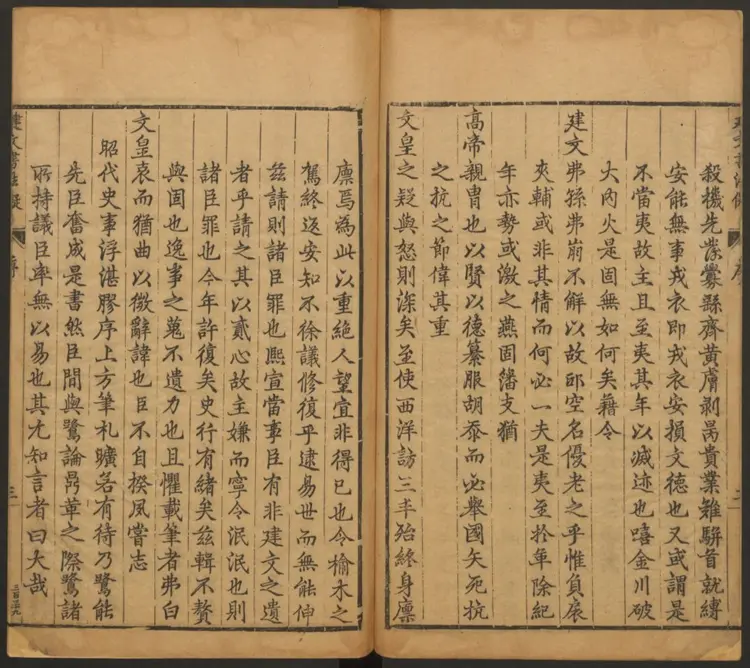 殺機先發釁繇齊黃膚剥曷貴業雖駢首就縛
安能無事戎衣即戎衣安損文德也又或謂是
不當夷故主且至夷其年以滅迹也嘻金川破
大内火是固無如何矣藉令
建文弗孫弗崩不解以故邸空名優老之乎惟負扆
夾輔或非其情而何必一夫是夷至於革除紀
年亦勢或激之燕固籓支猶
高帝親胄也以賢以德纂服胡忝而必舉國矢死抗
之抗之節偉其重
文皇之疑與怒則深矣至使西洋訪三丰殆終身廩
廩焉為此以重絕人望宜非得已也令榆木之
駕終返安知不徐議修復乎逮易世而無能伸
茲請則諸臣罪也熙宣當事臣有非建文之遺
者乎請之其以貳心故主嫌而寧令泯泯也則
諸臣罪也今年許復矣史行有緒矣茲輯不贅
與固也逸事之蒐不遺力也且懼載筆者弗白
文皇哀而猶曲以微辭諱也臣不自揆夙嘗志
昭代史事浮湛膠序上方筆札曠若有待乃鷺能
先臣奮成是書然臣間與鷺論鼎革之際鷺諸
所持議臣率無以易也其尤知言者曰大哉
建文書法儗
序
三